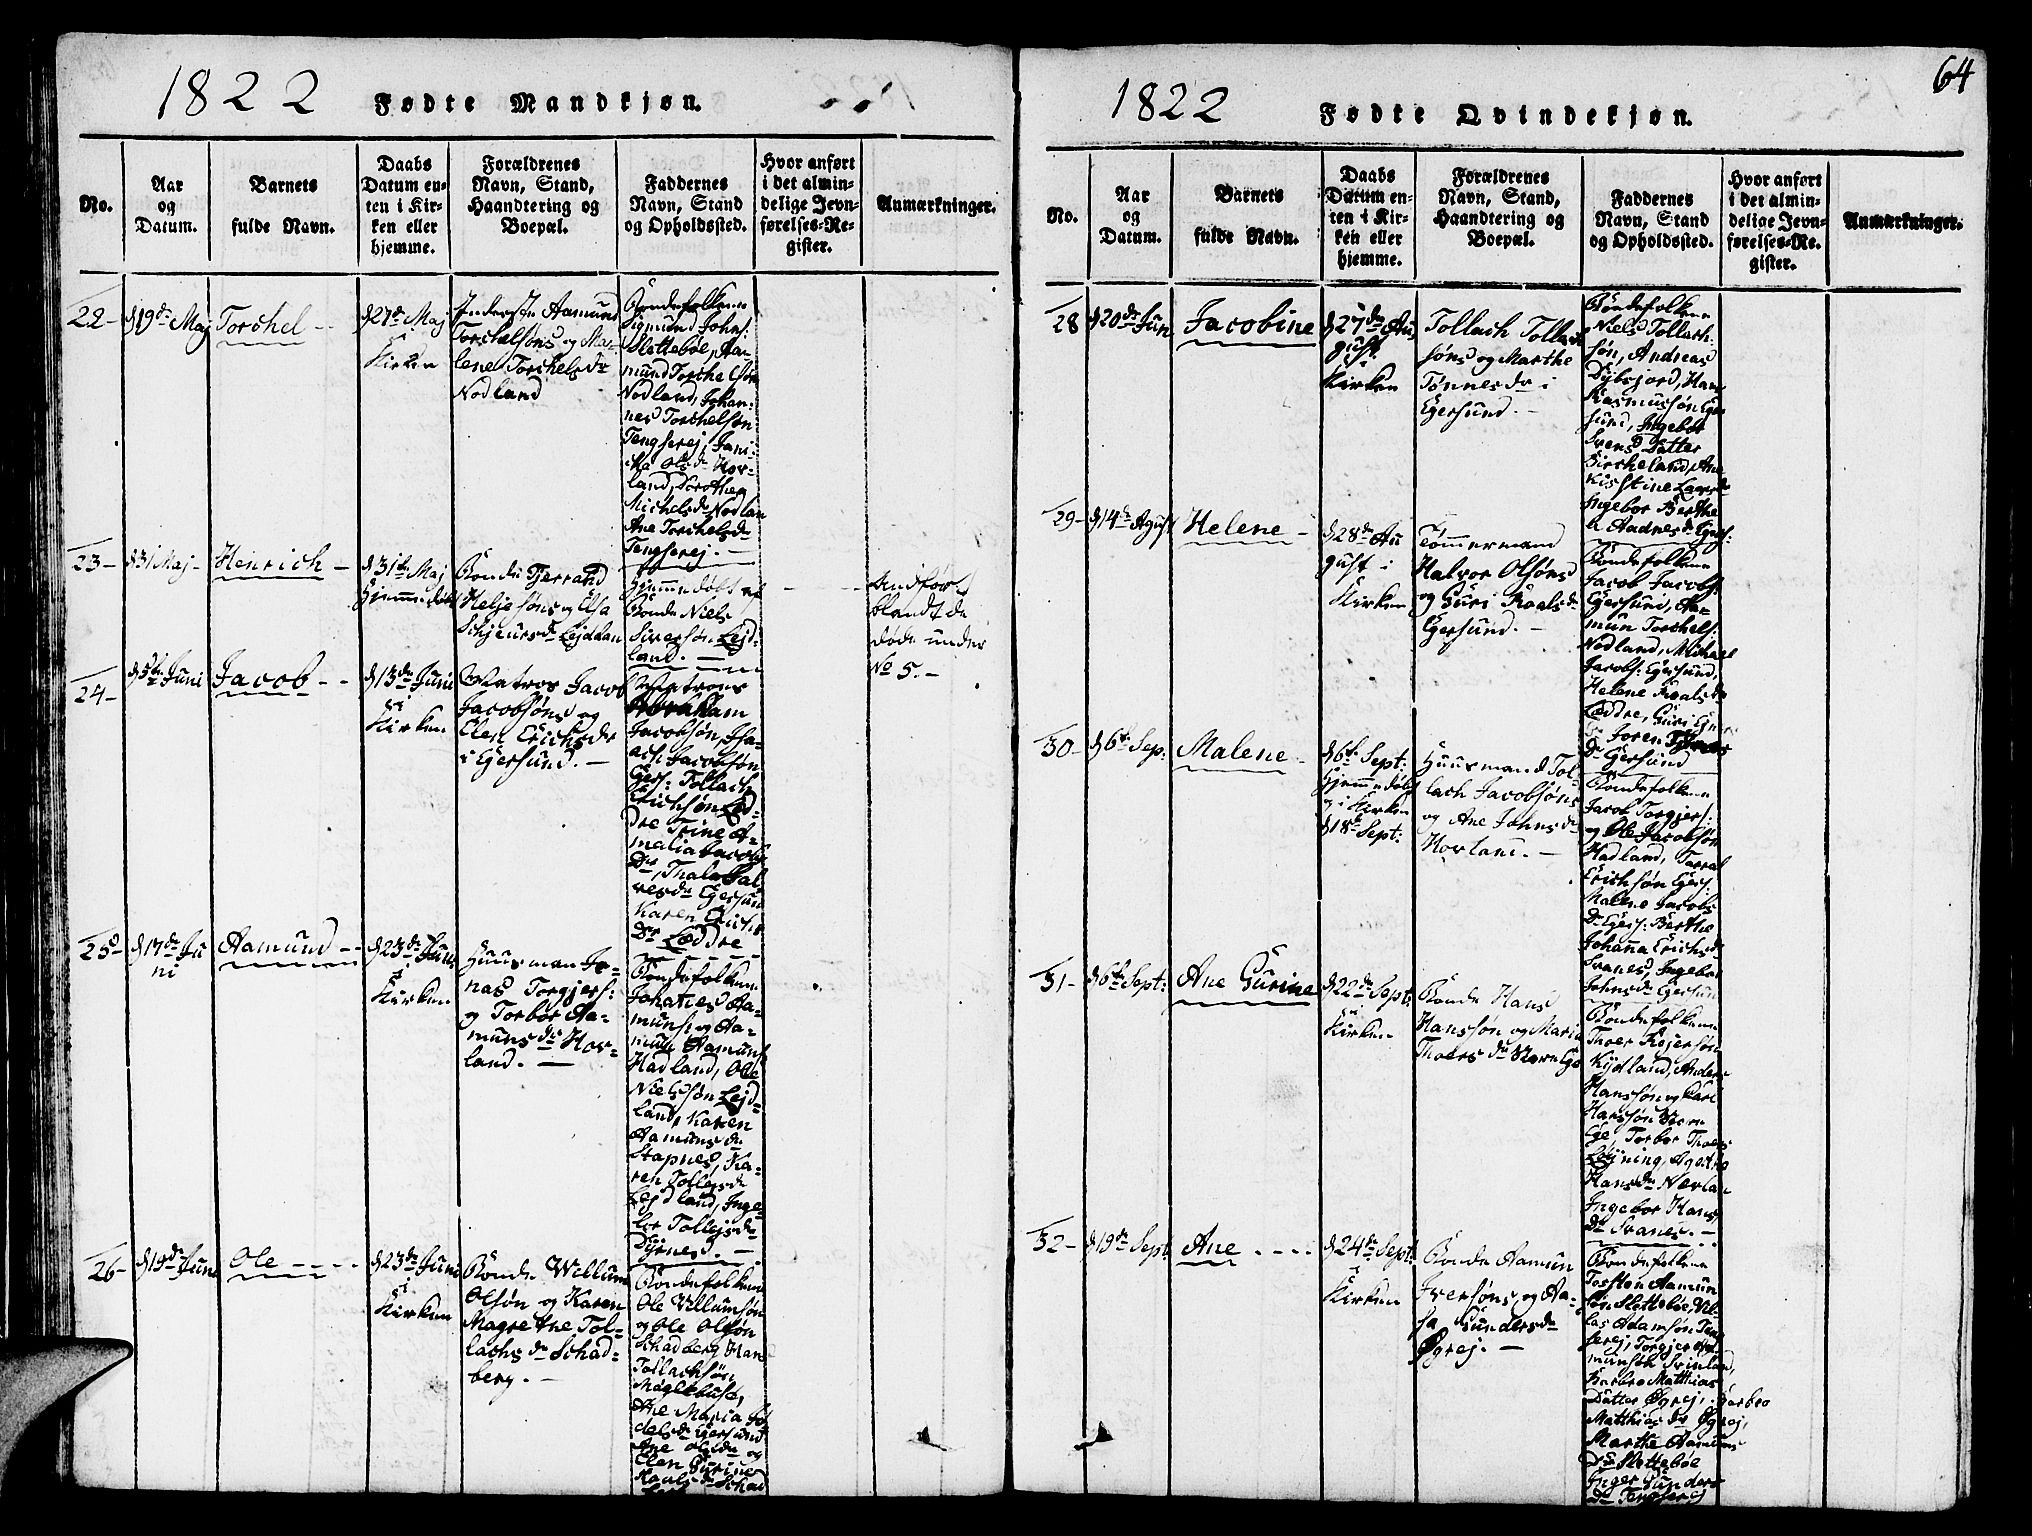 1822 Fødte Mandkjøn.
No.
Aar
og
Datum.
Barnets
fulde Navn.
Daabs
Datum en-
ten i Kir-
ken eller
hjemme.
Forældrenes
Navn, Stand,
Haandtering og
Boepæl.
Faddernes
Navn, Stand
og Opholdssted.
Hvor anført
i det almin-
delige Jevn-
førelses-Re-
gister.
Anmærkninger.
22-
d 19de Maj
Torchel
d 27de Maj
i
Kirken
Inderste Aamund
Torchelsøns og Ma-
lene Torchelsdr
Nodland
Bondefolkene
Sigmund Johns:
Slettebøe, Aa-
mund Torchelsøn
Nodland, Johan-
nes Torchelsøn
Tengserej, Jani-
cha Olsdr Hov-
land, Dorothea
Michelsdr Nodlan
Ane Torchelsdr
Tengserej. —
23-
d 31 Maj
Henrich
d 31te Maj
Hjemmedøbt
Bonde Tjerrand
Heljesøns og Elsa
Schjeversdr Lejdlan
Hjemmedøbt af
Bonde Niels
Siversøn Lejd-
land. —
Andført
blandt de
døde under
No 5. -
24-
d 5te Juni
Jacob
d 13de Juni
i
Kirken
Matros Jacob
Jacobsøns og
Elen Erichsdr
i Egersund. —
Matrons
Abraham
Jacobsøn, Isa-
ach Jacobsøn
Egers: Tollach
Erichsøn Led-
dre Trine A-
malia Jacobs
Dr, Thala Sal-
vesdr Egersund
Karen Erichs
Dr Leddre
25-
d 17de Ju
ni
Aamund
d 23de Juni
i
Kirken
Huusmand Jo-
nas Torgjers:
og Torbor Aa-
munsdr Hov-
land. —
Bondefolkene
Johanes Aa-
muns: og Aa-
mund Aamuns
Hadland, Ole
Nielsøn Lejd-
land, Karen
Aamunsdr
Stapnes, Ka-
ren Tollejsdr
Lejdland, Inge-
bor Tollejsdr
Dyrnes. —
26-
d 19de Juni
Ole
d 23de Juni
i
Kirken
Bonde Willum
Olsøn og Karen
Magrethe Tol-
lachsdr Schad-
berg. -
Bondefolkene
Ole Villumsøn
og Ole Olsøn
Schadberg Han
Tollachsøn
Maglebust,
Ane Maria
Egersund
Ane Olsdr og
Elen Gurine
Schad
1822 Fødte Qvindekjøn.
64
No.
Aar
og
Datum.
Barnets
fulde Navn.
Daabs
Datum en-
ten i Kir-
ken eller
hjemme.
Forældrenes
Navn, Stand,
Haandtering og
Boepæl.
Faddernes
Navn, Stand
og Opholdssted.
Hvor anført
i det almin-
delige Jevn-
førelses-Re-
gister.
Anmærkninger.
28
d 20de Jun
Jacobine
d 27de Au
gust
i
Kirken
Tollach Tollach
søns og Marthe
Tønnesdr i
Egersund. —
Bondefolkene
Niels Tollach-
søn, Andreas
Dybsjord, Han
Rasmussøn Eger
sund, Ingebor
Svens Datter
Bircheland, Ane
Kistine Larsdr
Ingebor Berthe
Aadnesdr Egers:
29-
d 14de Agust
Helene
d 28de Au
gust i
Kirken
Tømmermand
Halvor Olsøns
og Guri Roalsdr
Egersund. —
Bondefolkene
Jacob Jacobs:
Egersund, Aa-
mun Torchels:
Nodland, Michael
Jacobs: Egersund,
Helene Roalsdr
Leddre, Guri
Joren
Dr Egersund
30-
d 6te Sep:
Malene
d 6te Sept:
Hjemmedøbt
og i Kirken
d 18de Sept:
Huusmand Tol-
lach Jacobsøns
og Ane Johnsdr
Hovland. —
Bondefolkene
Jacob Torgjers:
og Ole Jacobsøn
Hadland, Tarral
Erichsøn Egers:
Malene Jacobs
Dr Egers: Berthe
Johanna Erichsdr
Svanes, Ingebor
Johnsdr Egersun
31-
d 6te Sept:
Ane Gurine
d 22de Sept:
i
Kirken
Bonde Hans
Hanssøn og Maria
Thoersdr
Bondefolkene
Thoer Rejersøn
Kydland, Anders
Hanssøn og Carl
Hanssøn
Ege, Torbor Thoers
Løyning, Agethe
Hansdr Nærlan
Ingebor Hans
Dr Svanes. —
32-
d 19de Sept
Ane
d 24de Sept:
i
Kirken
Bonde Aamun
Iversøns og Aa-
sa Gundersdr
Øgrej. —
Bondefolkene
Torsten Aamun
søn Slettebøe, Nil-
las Adamsøn Teng
serej, Torgjer Aa-
munsøn Svinland,
Barbro Matthias
Datter Øgrej, Barbro
Matthiasdr Øgrej,
Marthe Aamuns
Dr Slettebøe
Inger Gunders
dr Tengserej